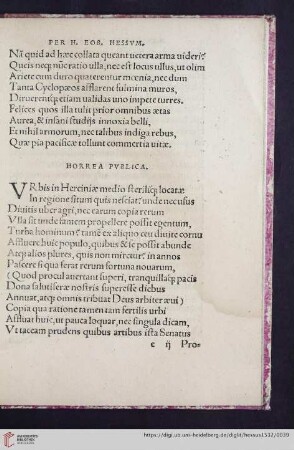 PER H. EOB. HESSVM.
Nã quid ad hæc collata queant uetera arma uideri?
Queis neqȝ nũc ratio ulla, nec est locus ullus, ut olim
Ariete cum duro quaterentur mœnia, nec dum
Tanta Cyclopæos afflarent fulmina muros,
Diruerentqȝ etiam ualidas uno impete turres.
Felices quos illa tulit prior omnibus ætas
Aurea, & insani studijs innoxia belli,
Et nihil armorum, nec talibus indiga rebus,
Quæ pia pacificæ tollunt commertia uitæ.
HORREA PVBLICA.
VRbis in Herciniæ medio sterilisqȝ locatæ
In regione situm quis nesciat? unde nec usus
Diuitis uber agri, nec earum copia rerum
Vlla sit unde famem propellere possit egentum,
Turba hominum? tamẽ ex aliquo ceu diuite cornu
Affluere huic populo, quibus & se possit abunde
Atqȝ alios plures, quis non miretur? in annos
Pascere si qua ferat rerum fortuna nouarum,
(Quod procul auertant superi, tranquillaqȝ pacis
Dona salutiferæ nostris superesse diebus
Annuat, atqȝ omnis tribuat Deus arbiter æui)
Copia qua ratione tamen tam fertilis urbi
Affluat huic, ut pauca loquar, nec singula dicam,
Vt taceam prudens quibus artibus ista Senatus
e ij Pro-
https://digi.ub.uni-heidelberg.de/diglit/hessus1532/0039